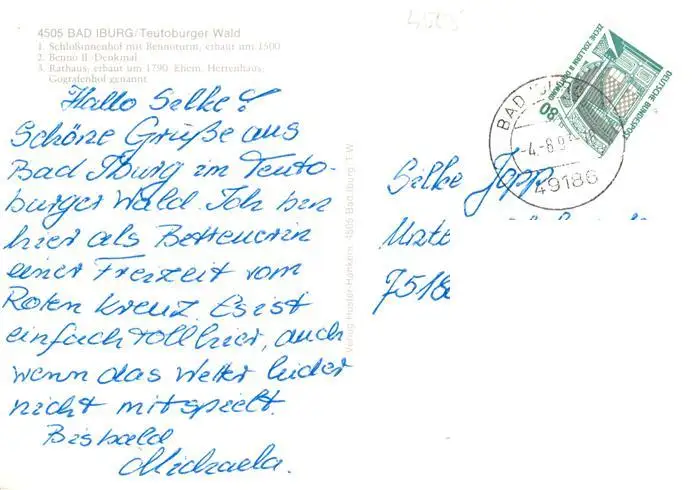 4505 BAD IBURG/Teutoburger Wald
1. Schloßinnenhof mit Bennoturm, erbaut um 1500
2. Benno II-Denkmal
3. Rathaus, erbaut um 1790 Ehem. Herrenhaus,
Gografenhof genannt
Hallo Silke!
Schöne Grüße aus
Bad Iburg im Teuto-
burger Wald. Ich bin
hier als Betreuerin
einer Freizeit vom
Roten Kreuz. Es ist
einfach toll hier, auch
wenn das Wetter leider
nicht mitspielt.
Bis bald
Michaela.
Verlag Huster-Hankers, 4505 Bad Iburg T.W.
DEUTSCHE BUNDESPOST
80
ZECHE ZOLLERN II DORTMUND
BAD
-4.-8.9
49186
Silke Jopp
7518